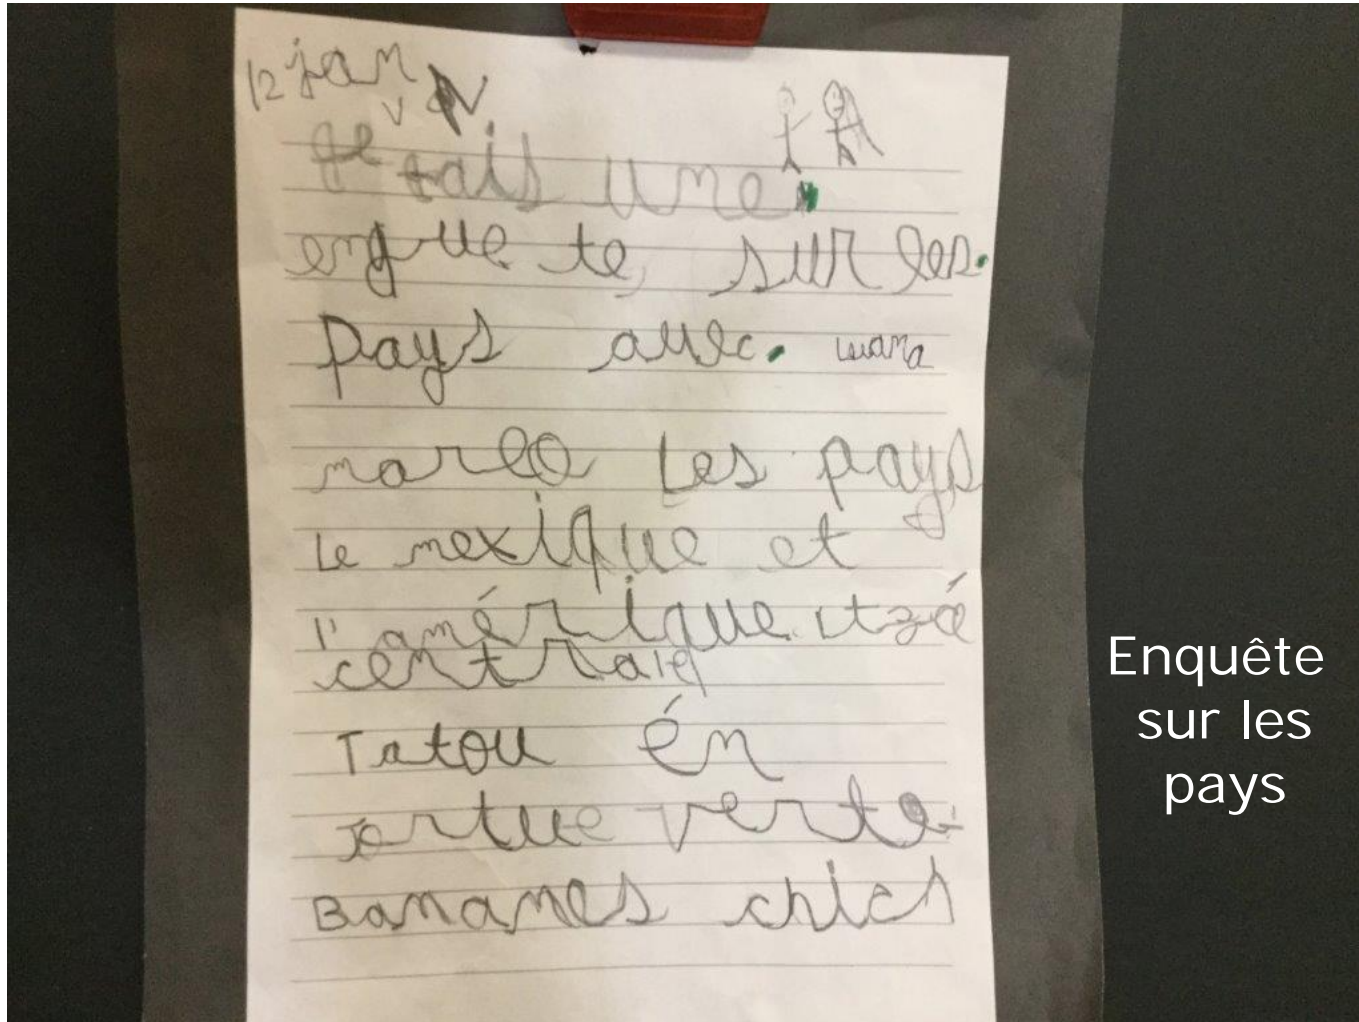 12 janv
Je fais une
enquete sur les
pays avec
Les pays
Le mexique et
l'amérique
centrale
Tatou én
ortue verte
Bananes
Enquête
sur les
pays